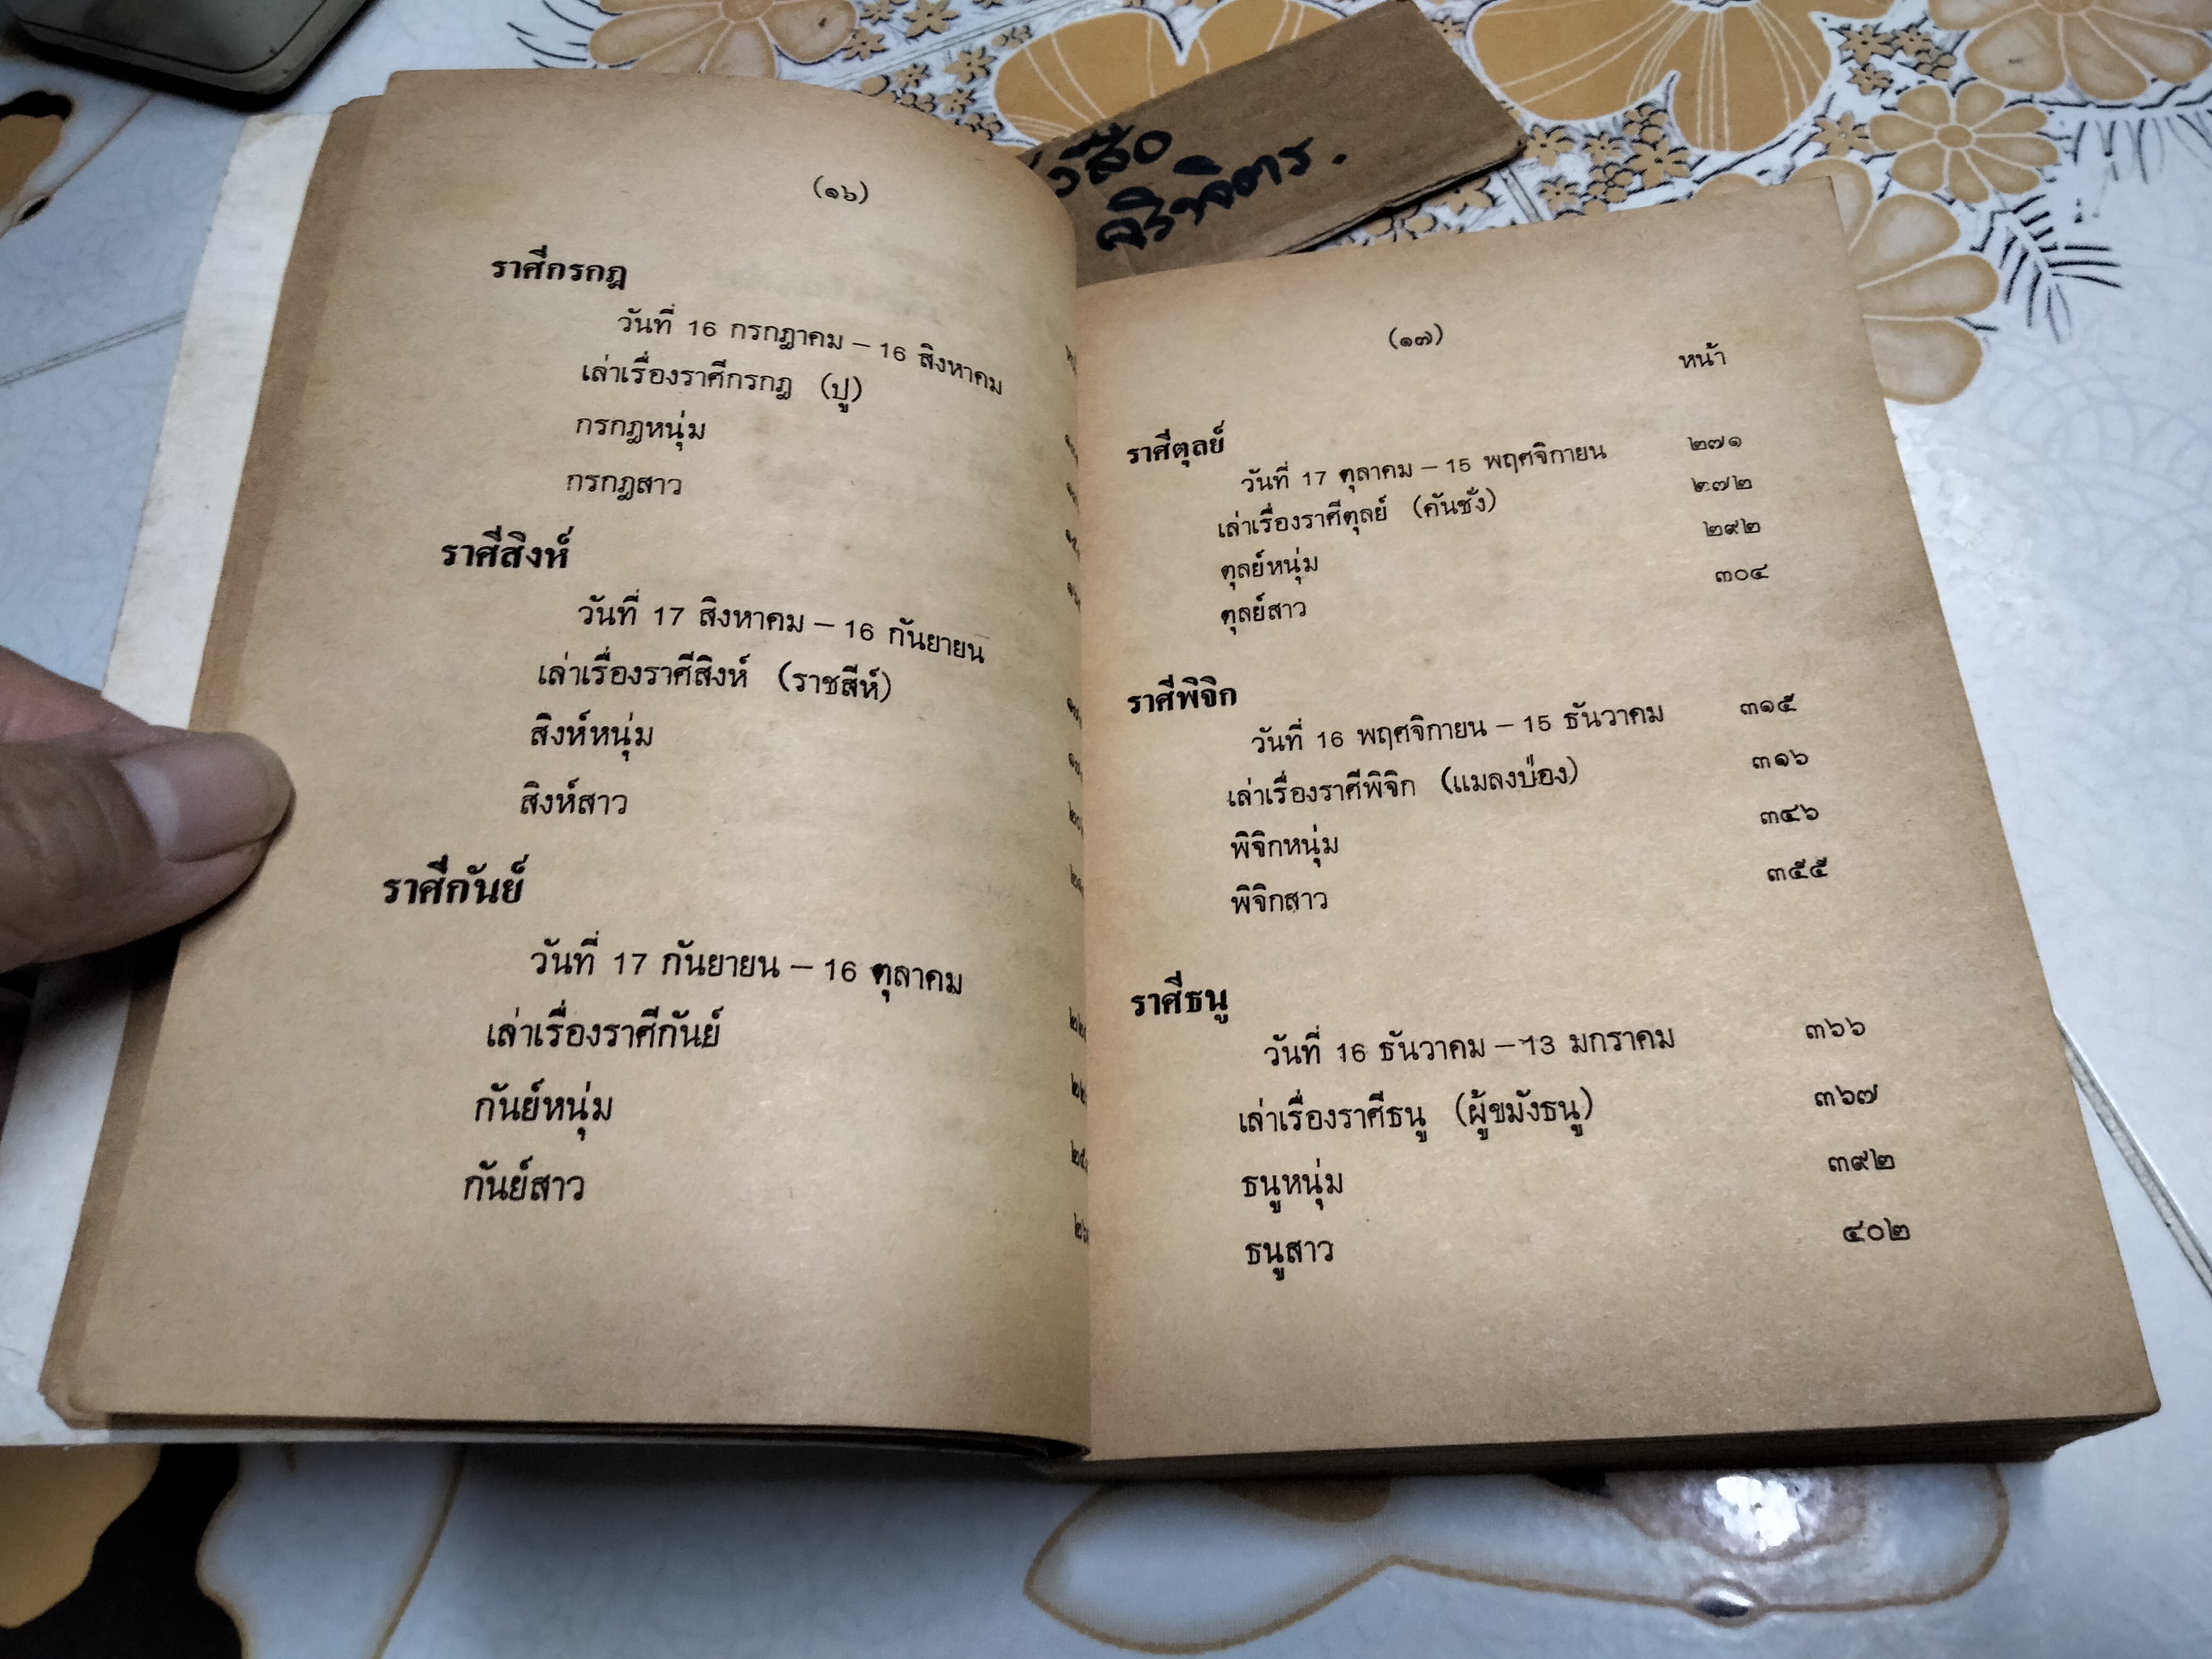 (๑๖)
ราศีกรกฎ
วันที่ 16 กรกฎาคม – 16 สิงหาคม
เล่าเรื่องราศีกรกฎ (ปู)
กรกฎหนุ่ม
กรกฎสาว
ราศีสิงห์
วันที่ 17 สิงหาคม – 16 กันยายน
เล่าเรื่องราศีสิงห์ (ราชสีห์)
สิงห์หนุ่ม
สิงห์สาว
ราศีกันย์
วันที่ 17 กันยายน – 16 ตุลาคม
เล่าเรื่องราศีกันย์
กันย์หนุ่ม
กันย์สาว
(๑๗)
หน้า
ราศีตุลย์
วันที่ 17 ตุลาคม – 15 พฤศจิกายน ๒๗๑
เล่าเรื่องราศีตุลย์ (คันชั่ง) ๒๗๒
ตุลย์หนุ่ม ๒๙๒
ตุลย์สาว ๓๐๔
ราศีพิจิก
วันที่ 16 พฤศจิกายน – 15 ธันวาคม ๓๑๕
เล่าเรื่องราศีพิจิก (แมลงป่อง) ๓๑๖
พิจิกหนุ่ม ๓๔๖
พิจิกสาว ๓๕๕
ราศีธนู
วันที่ 16 ธันวาคม – 13 มกราคม ๓๖๖
เล่าเรื่องราศีธนู (ผู้ขมังธนู) ๓๖๗
ธนูหนุ่ม ๓๙๒
ธนูสาว ๔๐๒